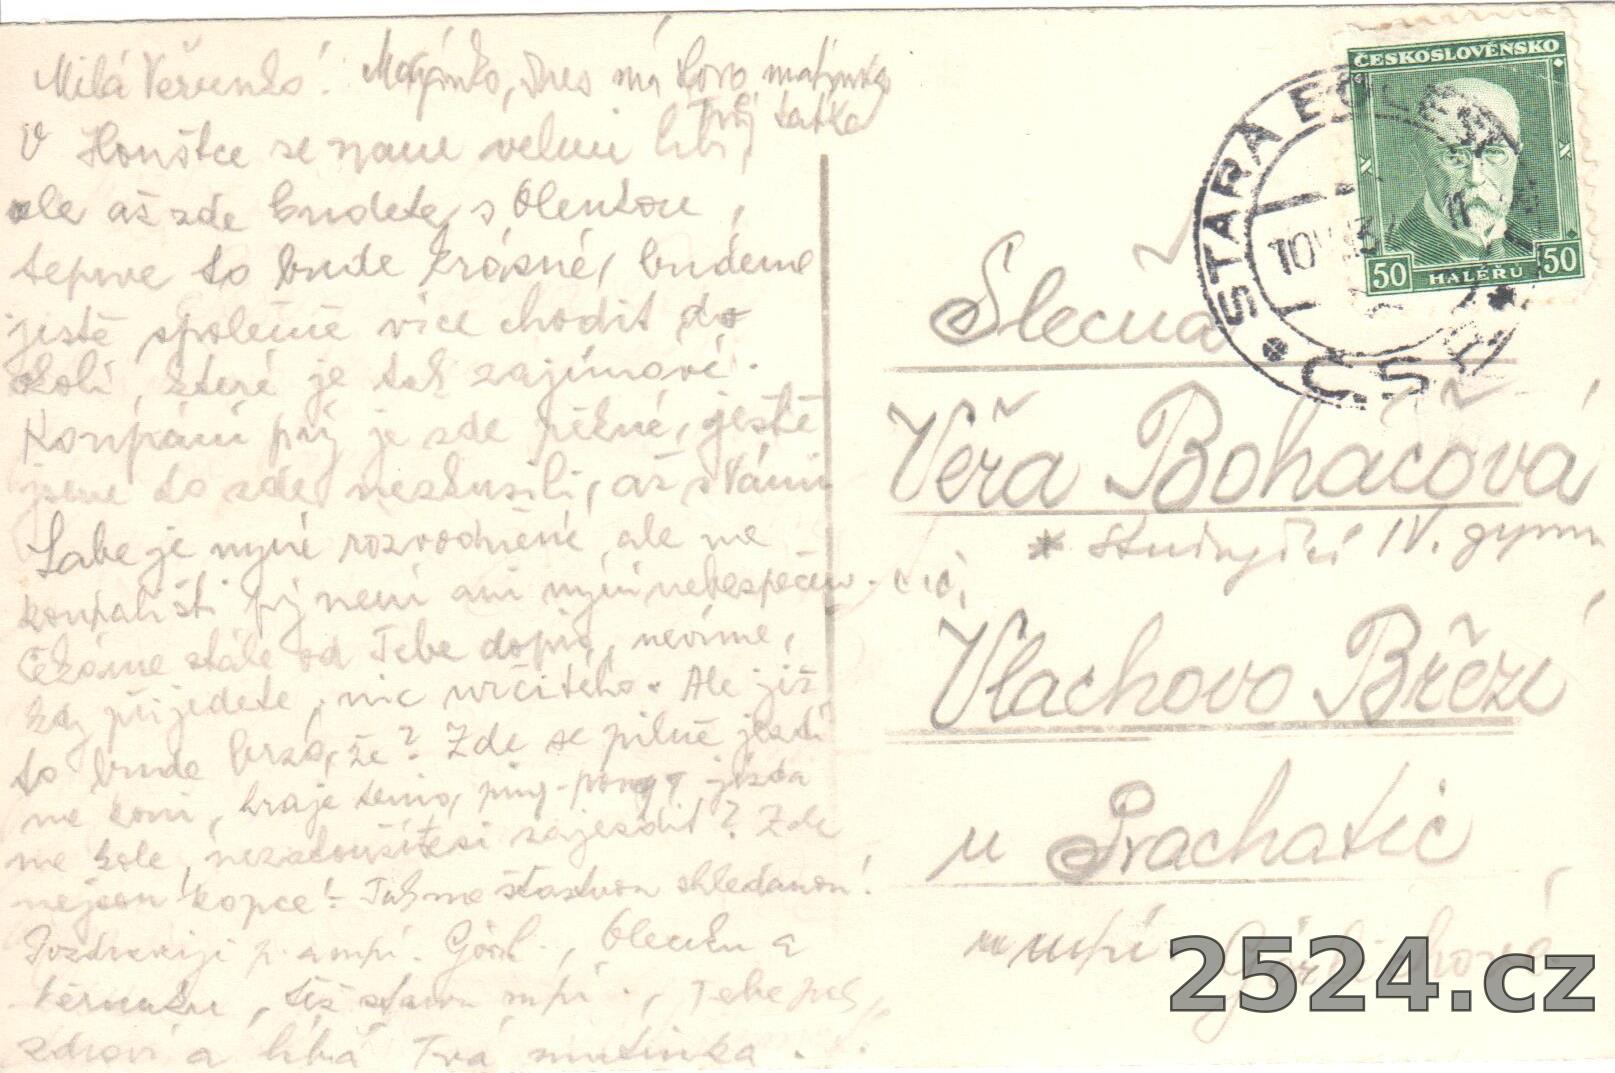 Milá Věrunko! Maránko, dnes má
Tvůj tatka
V Houštce se nam velmi líbí,
ale až zde budete s Olentou,
teprve to bude krásné, budeme
ještě společně více chodit do
okolí, které je tak zajímavé.
Koupání prý je zde pěkné, ještě
jsme to zde nezkusili, až s Vámi
Labe je nyní rozvodněné, ale na
koupališti prý není ani nyní nebezpečno.
Čekáme stále od Tebe dopis, nevíme,
kdy přijedete, nic určitého. Ale již
to bude brzo, že? Zde se pilně jezdí
na koni, hraje tenis, ping-pong, jízda
na kole, nezatoužíte si zajezdit? Zde
nejsou kopce! Tak na šťastnou shledanou!
Pozdravuji p. a mpí. Görl., Olenku a
Věrušku, též starou mpí., Tebe
zdraví a líbá Tvá mutinka.
ČESKOSLOVENSKO
50 HALÉŘŮ 50
STARÁ BOLESLAV
ČSR
10
Slečna
Věra Boháčová
* studující IV. gymn
Vlachovo Březí
u Prachatic
u mpí
2524.cz